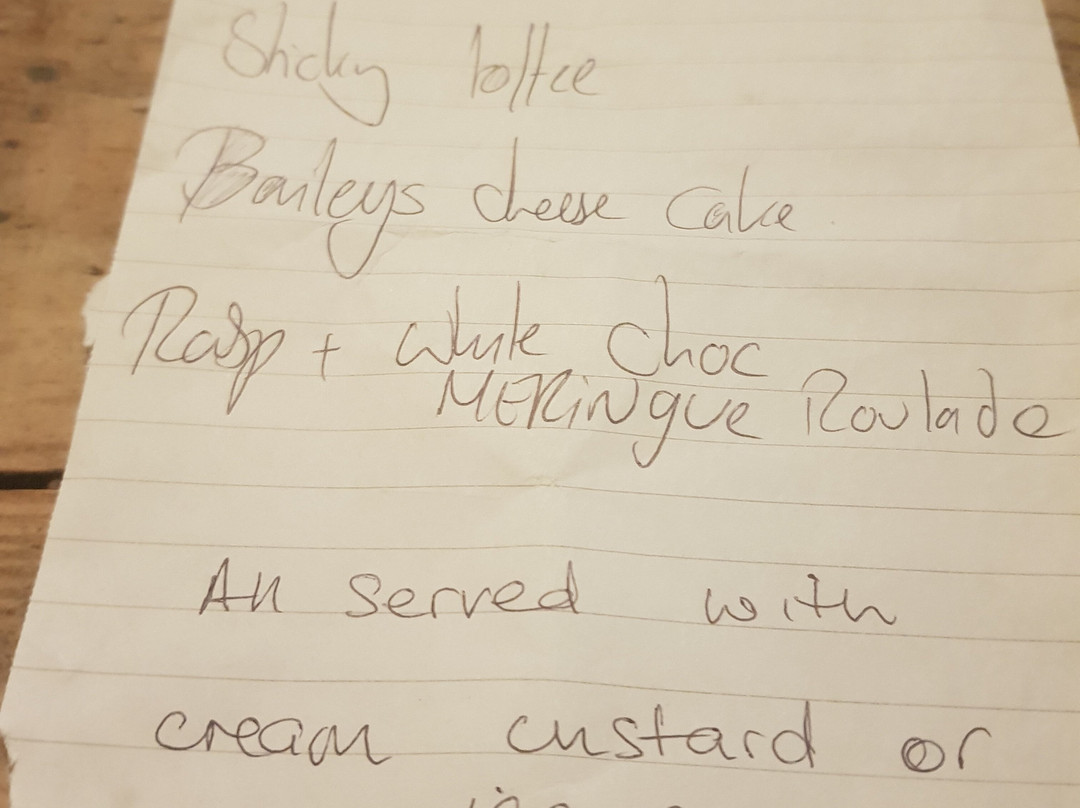 Sticky toffee
Baileys cheese cake
Rasp + white choc
MERiNgue Roulade
All served with
cream custard or